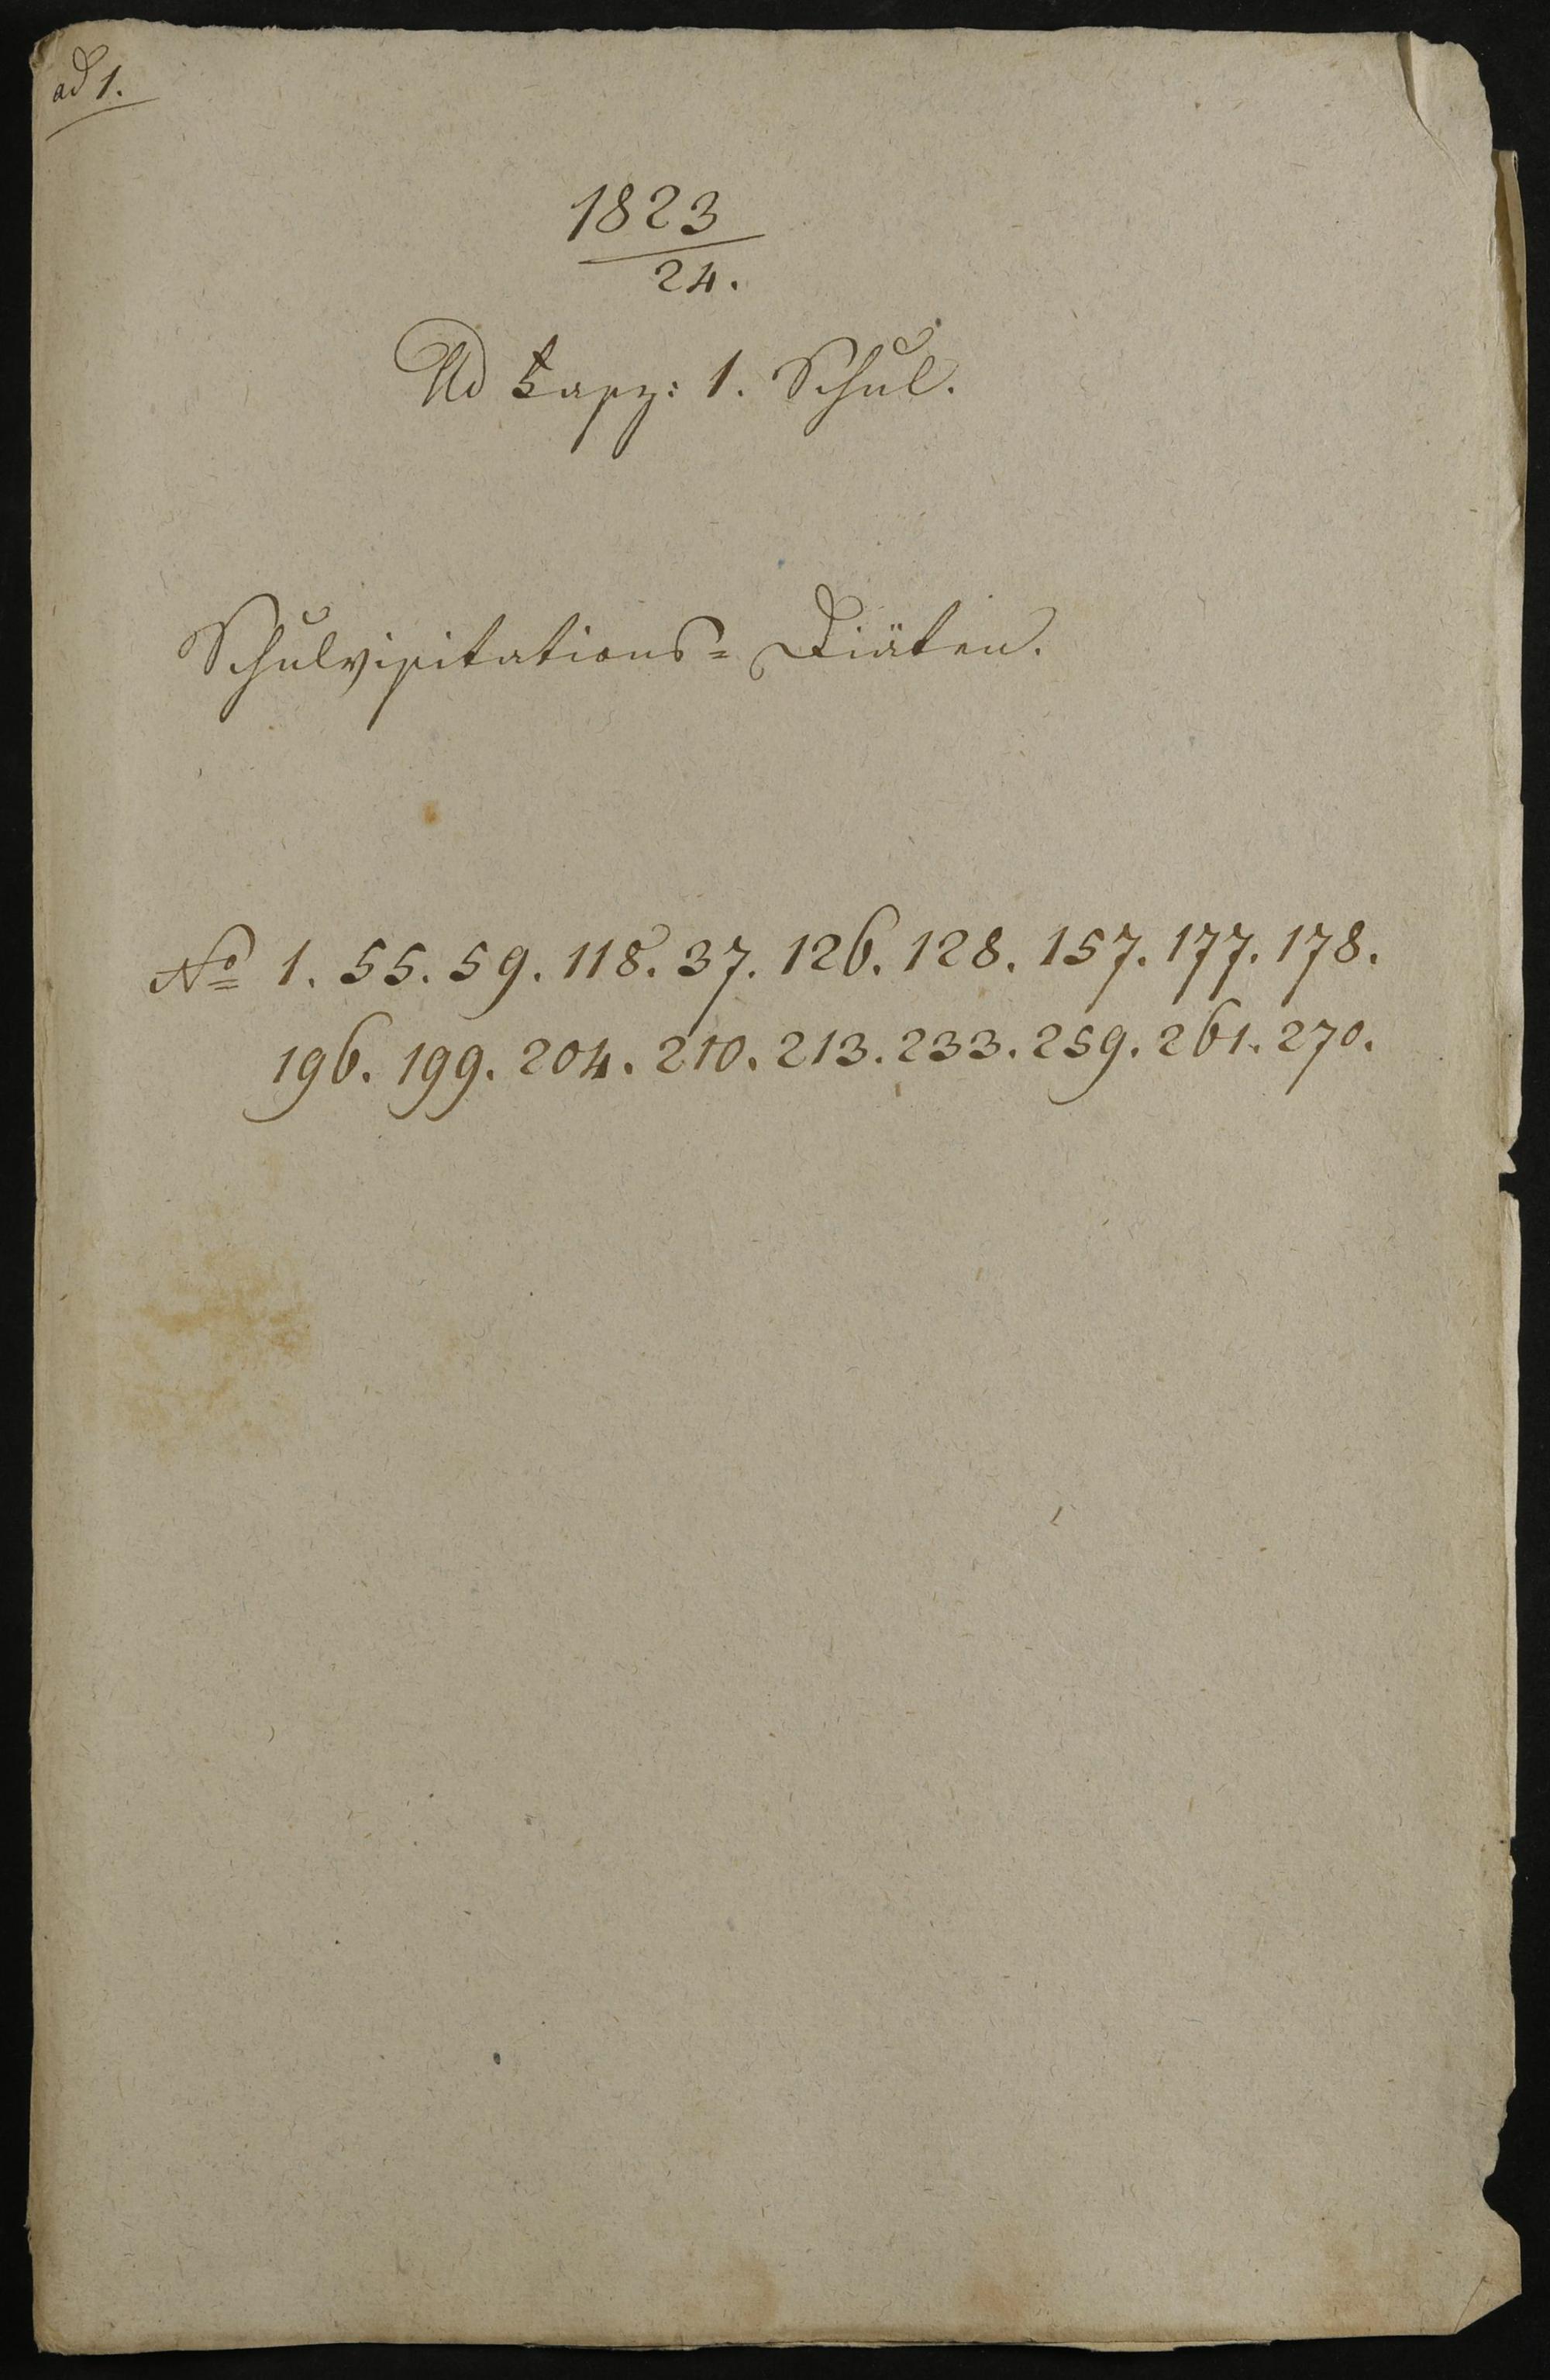 ad 1.
1823
24.
Ad Fasz: 1. Schul.
Schulvisitations= Diäten.
No 1. 55. 59. 118. 37. 126. 128. 157. 177. 178.
196. 199. 204. 210. 213. 233. 259. 261. 270.